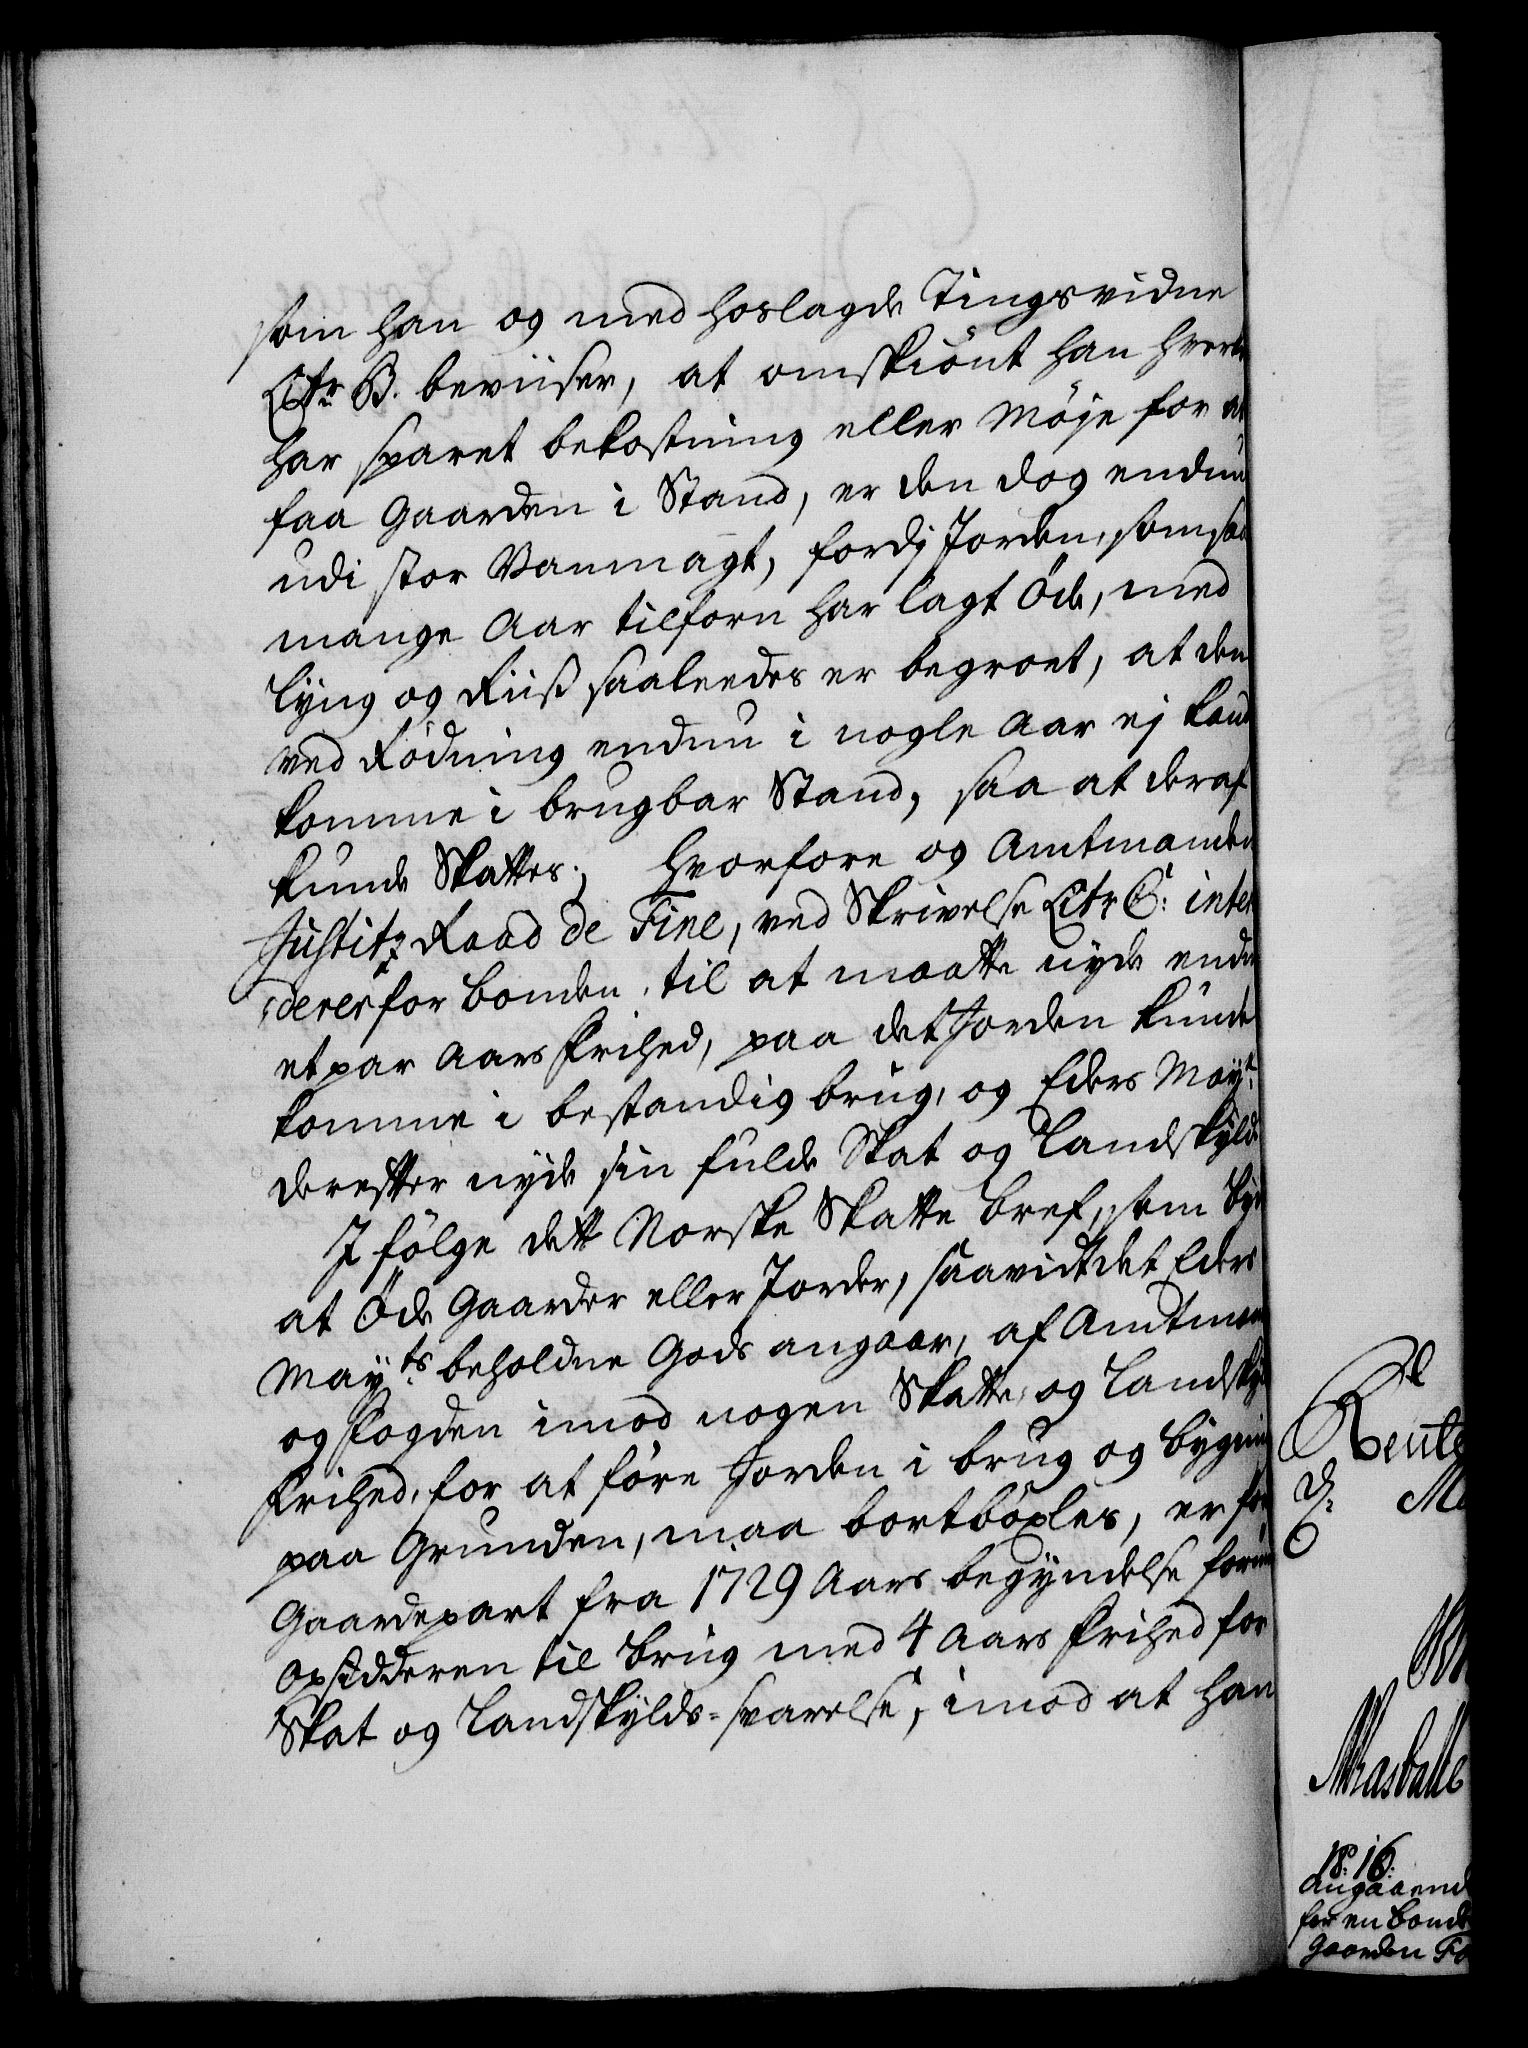 som han og med hoslagde Tingsvidne
Litr B. beviiser, at omskiönt han hverken
har sparet bekostning eller Möje for at
faa Gaarden i Stand, er den dog endnu
udi stor Vanmagt, fordj Jorden, som saa
mange Aar tilforn har lagt Öde, med
Lÿng og Riis saaleedes er begroet, at den
ved Rödning endnu i nogle Aar ej kand
komme i brugbar Stand, saa at deraf
kunde Skattes; hvorfore og Amtmanden
Justitz Raad de Fine, ved Skrivelse Litr C: inter
cderer for bonden, til at maatte nyde endnu
et par Aars Frihed, paa det Jorden kunde
komme i bestandig brug, og Eders Mayt:
derefter nyde sin fulde Skat og Landskyld
I fölge dett Norske Skatte bref, som byder
at Öde Gaarder eller Jorder, saavidt det Eders
Mayts beholdne Gods angaar, af Amtmanden
og Fogden imod nogen Skatte og Landskyld
Frihed, for at före Jorden i brug og bygning
paa Grunden, maa bortböxles, er
Gaardepart fra 1729 Aars begyndelse forundt
Opsidderen til brug med 4 Aars Frihed for
Skat og Landskylds-svarelse, imod at han
Rente
18: 16:
Angaaende
for en bonde
Gaarden